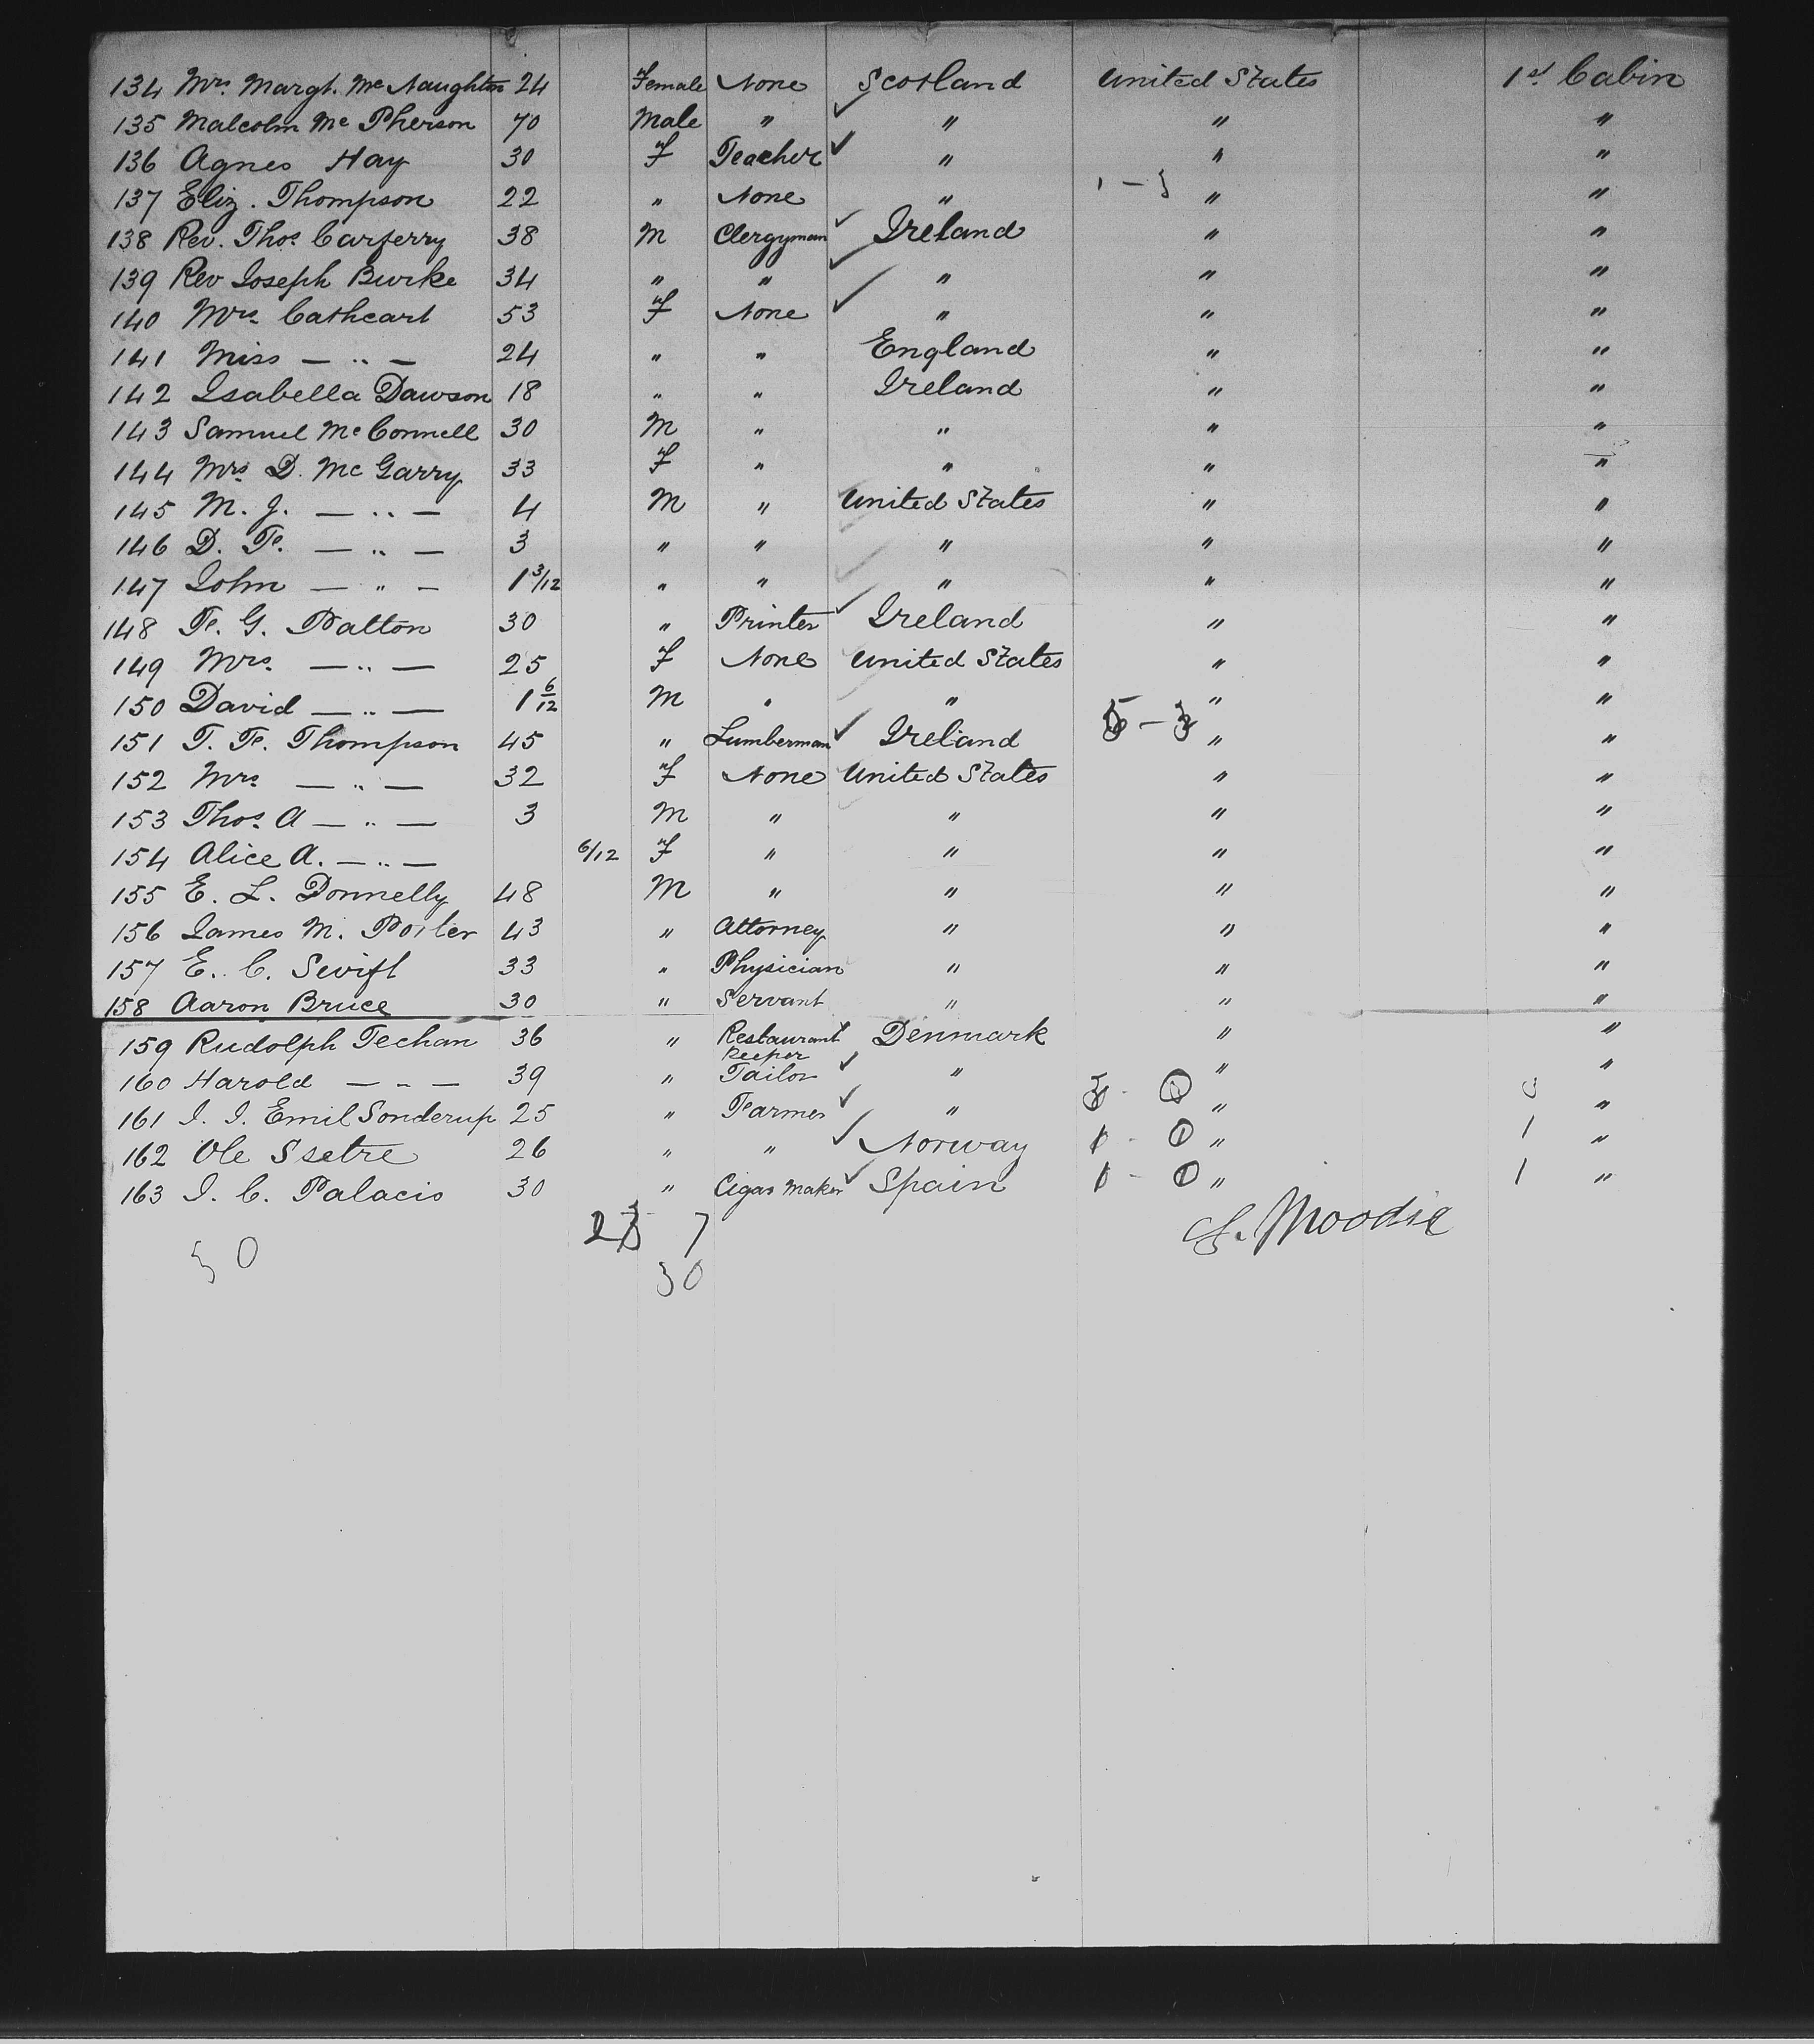 134 Mrs. Margt. McNaughton 24 Female None Scotland United States 1st Cabin
135 Malcolm McPherson 70 Male " " " "
136 Agnes Hay 30 F Teacher " " "
137 Eliz. Thompson 22 " None " " "
138 Rev. Thos. Carferry 38 M Clergyman Ireland " "
139 Rev Joseph Burke 34 " " " " "
140 Mrs. Cathcart 53 F None " " "
141 Miss — " — 24 " " England " "
142 Isabella Dawson 18 " " Ireland " "
143 Samuel McConnell 30 M " " " "
144 Mrs D. McGarry 33 F " " " "
145 M. J. — " — 4 M " United States " "
146 D. F. — " — 3 " " " " "
147 John — " — 1 3/12 " " " " "
148 F. G. Patton 30 " Printer Ireland " "
149 Mrs. — " — 25 F None United States " "
150 David — " — 1 6/12 M " " " "
151 T. F. Thompson 45 " Lumberman Ireland " "
152 Mrs — " — 32 F None United States " "
153 Thos. A — " — 3 M " " " "
154 Alice A. — " — 6/12 F " " " "
155 E. L. Donnelly 48 M " " " "
156 James M. Porter 43 " Attorney " " "
157 E. C. Swift 33 " Physician " " "
158 Aaron Bruce 30 " Servant " " "
159 Rudolph Techan 36 " Restaurant Denmark " "
Keeper
160 Harold — " — 39 " Tailor " " "
161 J. J. Emil Sonderup 25 " Farmer " " "
162 Ole Ssetre 26 " " Norway " 1 "
163 J. C. Palacis 30 " Cigar Maker Spain " 1 "
7
Moodie
30 30